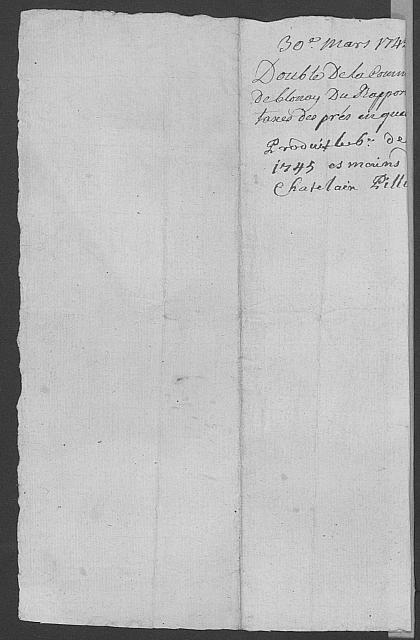 30e. Mars 174
Double De la Comm
de blonay Du Rappor
taxes des prés en que
Produit le 6e. de
1745 es mains
Chatelain Pille